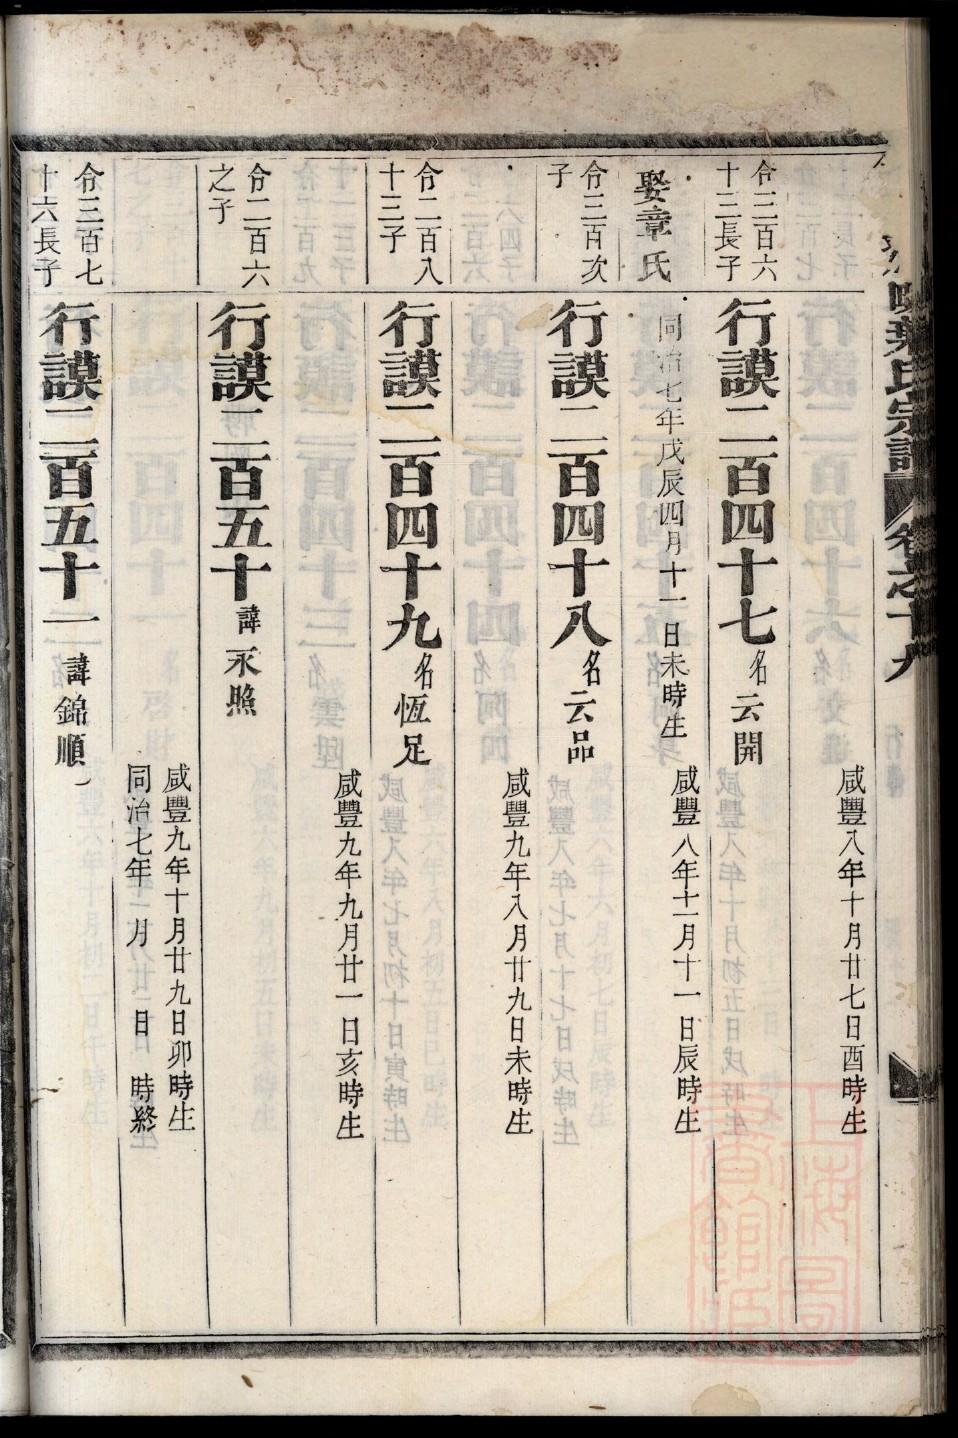 葉氏宗譜
卷之十九
令三百六
十三長子
行謨二百四十七名云開
咸豐八年十月廿七日酉時生
娶章氏
同治七年戊辰四月十一日未時生
令三百次
子
行謨二百四十八名云品
咸豐八年十一月十一日辰時生
令二百八
十三子
行謨二百四十九名恆足
咸豐九年八月廿九日未時生
令二百六
之子
行謨二百五十諱永照
咸豐九年九月廿一日亥時生
令三百七
十六長子
行謨二百五十一諱錦順
咸豐九年十月廿九日卯時生
同治七年 月 日 時終